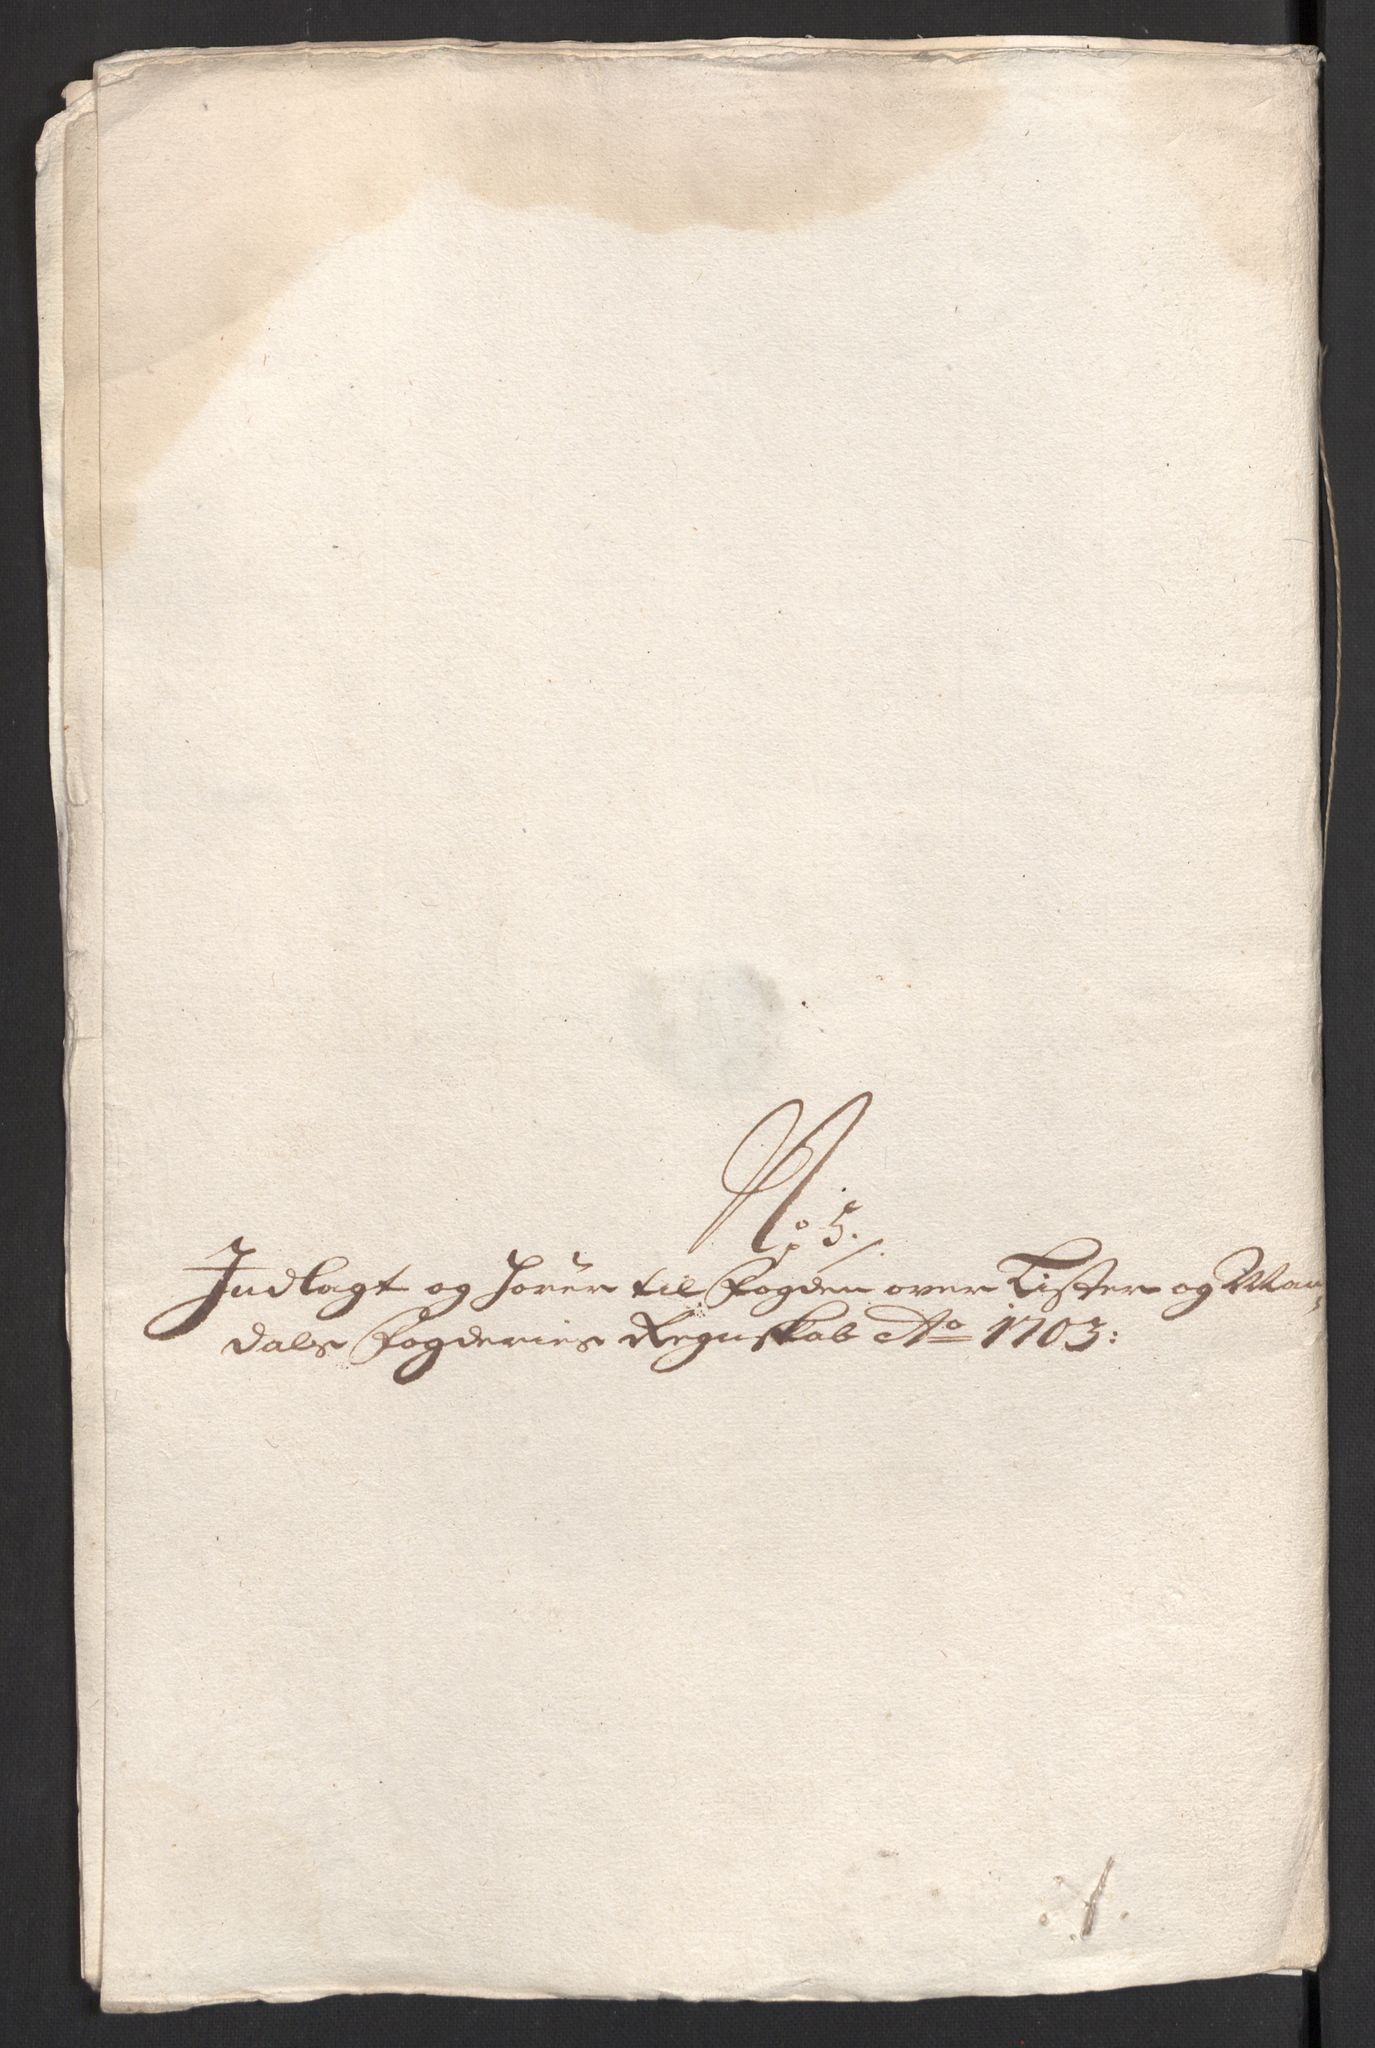 No 5.
Indlagt og hører til Fogden over Lister og Man-
dals Fogderies Regnskab Ao 1703: